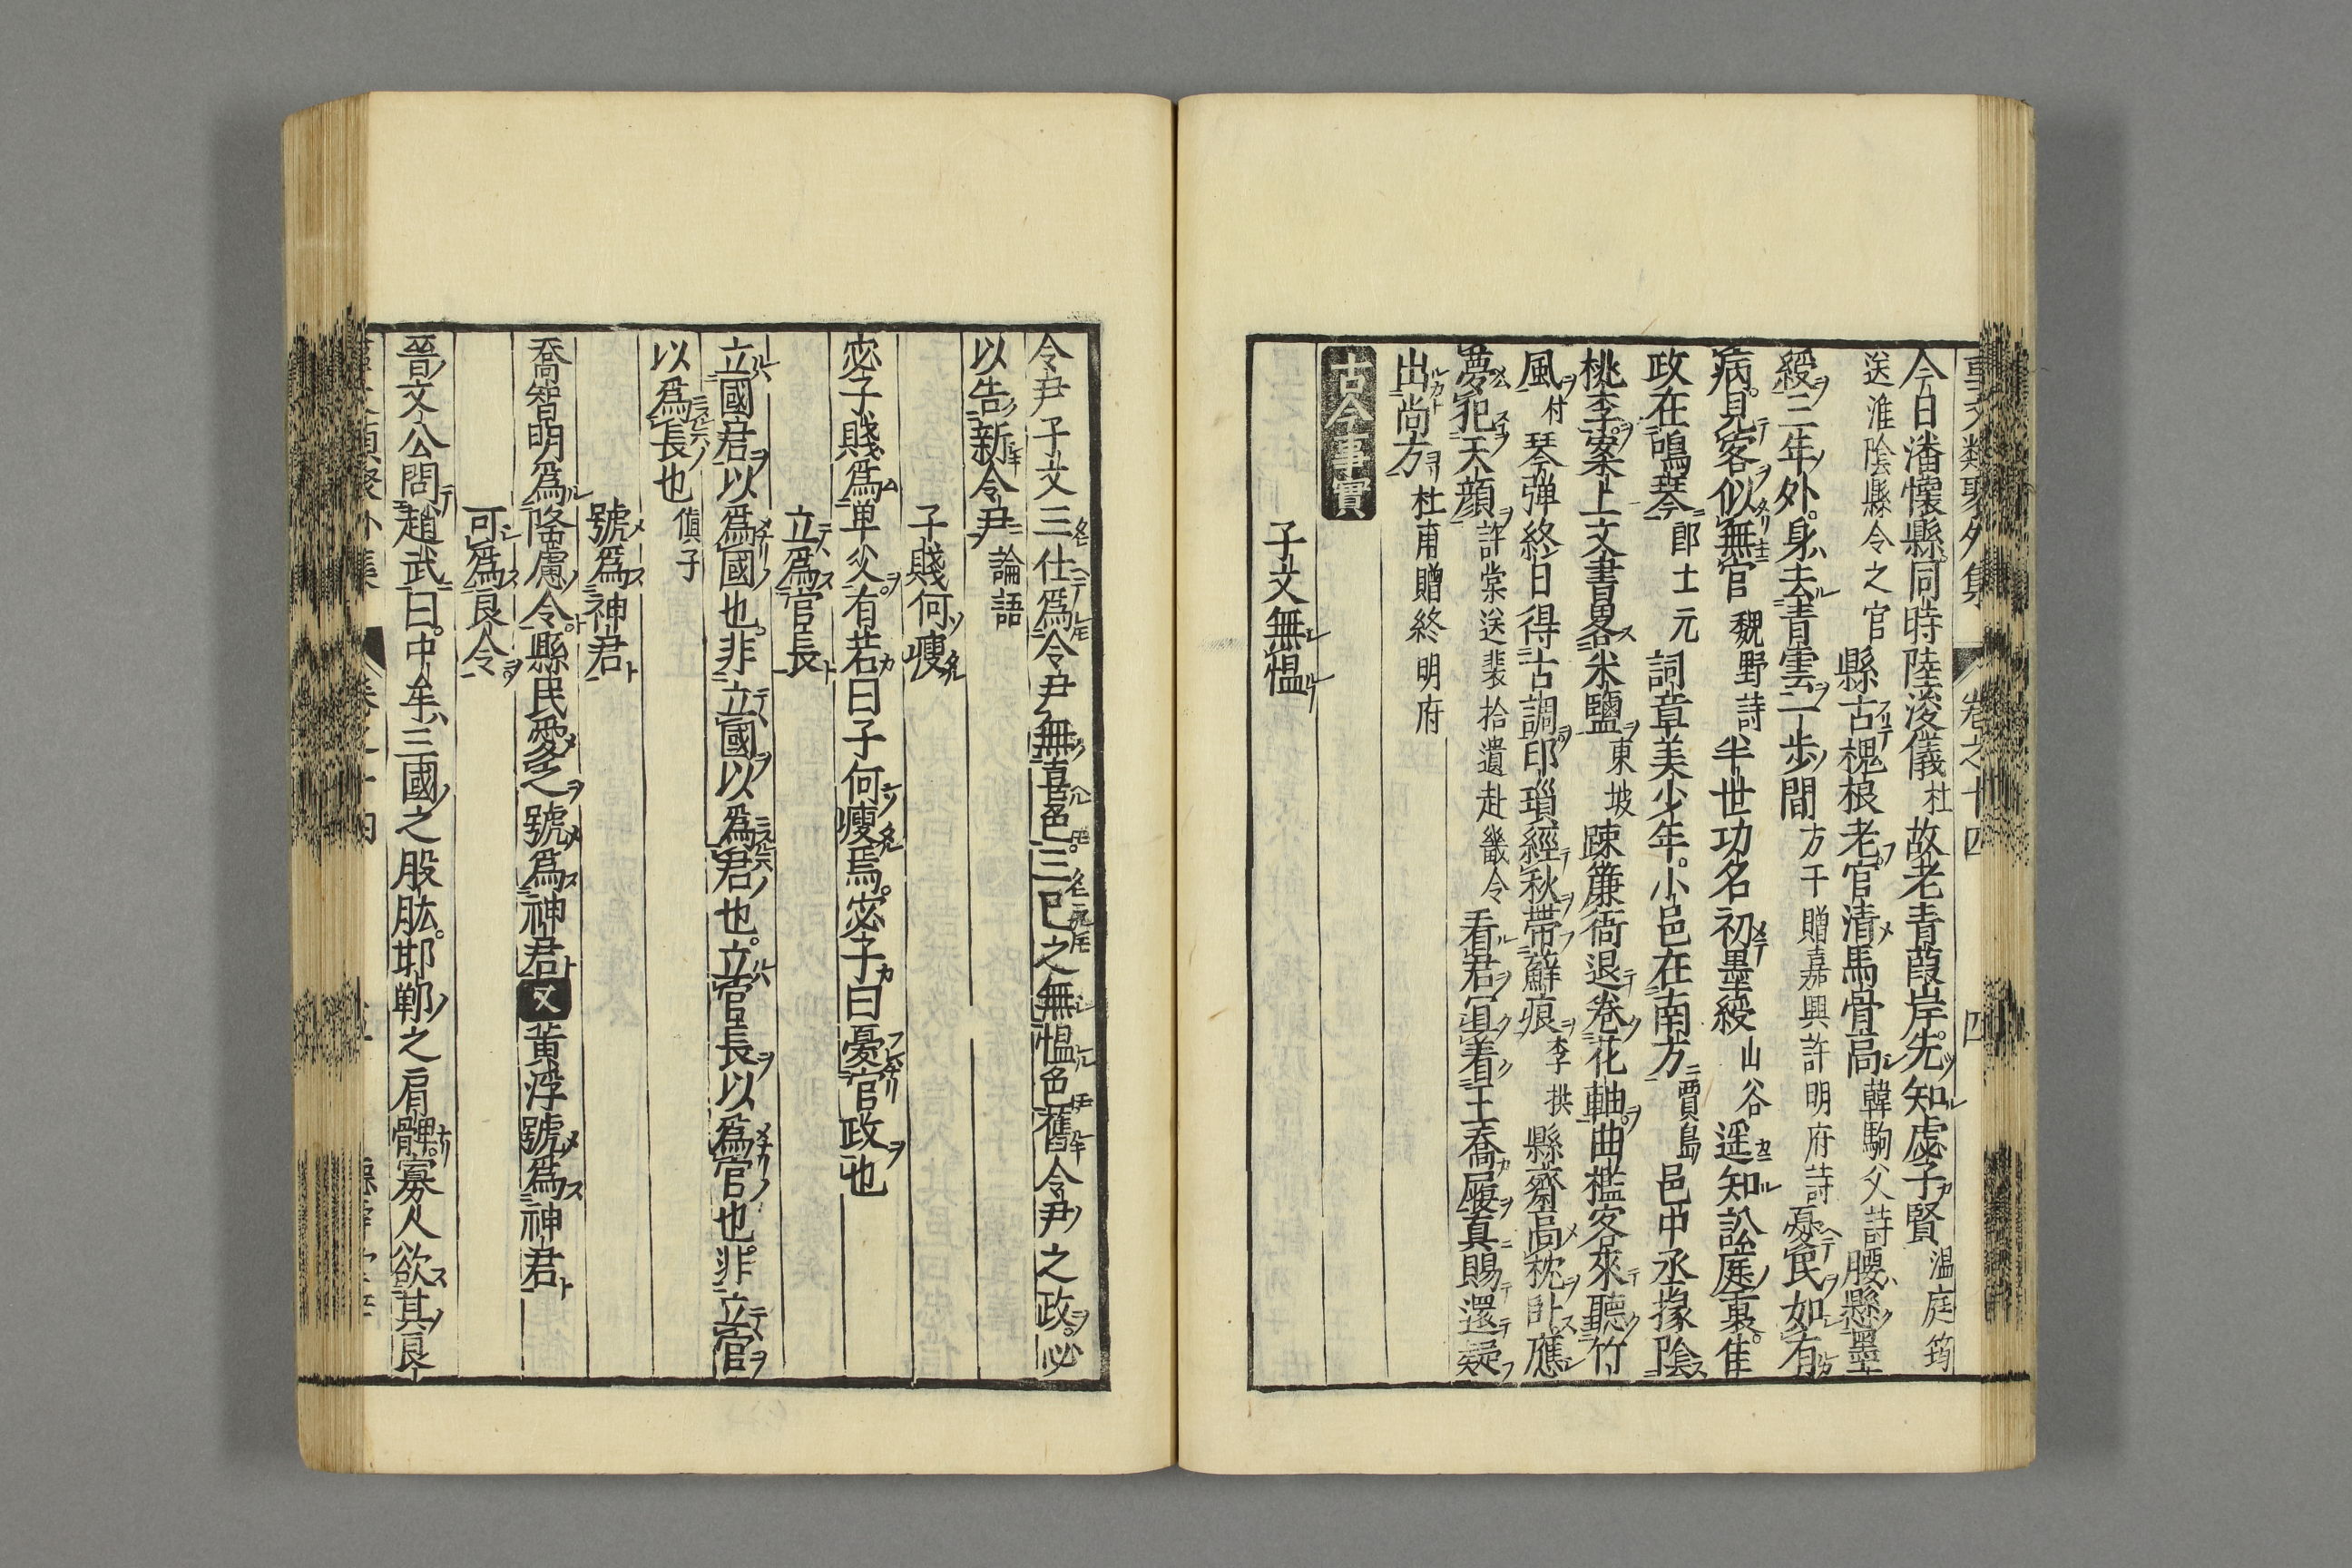 事文類聚外集 卷之十四 四
今日潘懷縣同時陸浚儀杜故老青葭岸先知虙子賢溫庭筠
送淮陰縣令之官縣古槐根老官清馬骨高韓駒父詩腰縣墨
綬三年外身去青雲一步間方干贈嘉興許明府詩憂民如有
病見客似無官魏野詩半世功名初墨綬山谷遥知訟庭裏隹
政在鳴琴郎士元詞章美少年小邑在南方賈島邑中丞掾陰
桃李案上文書畧米鹽東坡踈簾衙退卷花軸曲檻客來聽竹
風村琴弾終日得古調印瑣經秋帶蘚痕李拱縣齋高枕卧應
夢犯天顔許棠送裴拾遺赴畿令看君宜着王喬履真賜還疑
出尚方杜甫贈終明府
古今事實
子文無愠
令尹子文三仕爲令尹無喜色三已之無愠色舊令尹之政必
以告新令尹論語
子賤何瘦
宓子賤爲单父有若曰子何瘦焉宓子曰憂官政也
立爲官長
立國君以爲國也非立國以爲君也立官長以爲官也非立官
以爲長也傎子
號爲神君
喬智明爲隆慮令縣民愛之號爲神君又黃浮號爲神君
可爲良令
晉文公問趙武曰中牟三國之股肱邯鄲之肩髀寡人欲其良